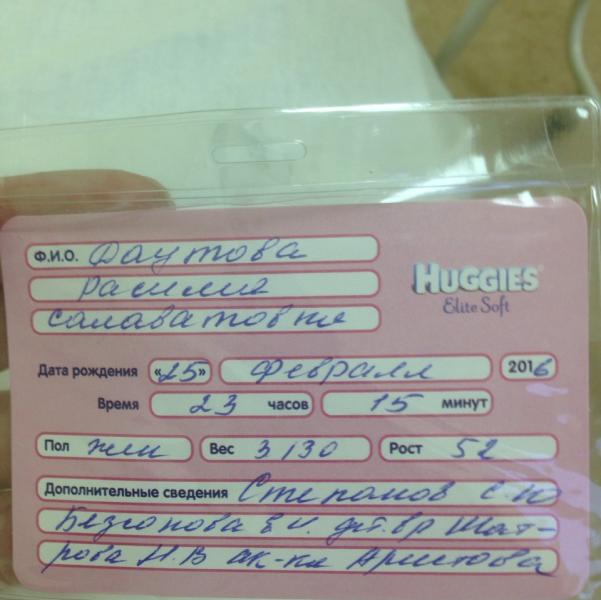 Ф.И.О. Даутова
Расилия
Салаватовна
HUGGIES
Elite Soft
Дата рождения «25» февраля 2016
Время 23 часов 15 минут
Пол жен Вес 3130 Рост 52
Дополнительные сведения Степанов С.Ю
дт.вр Шат-
рова Н.В ак-ка Аристова